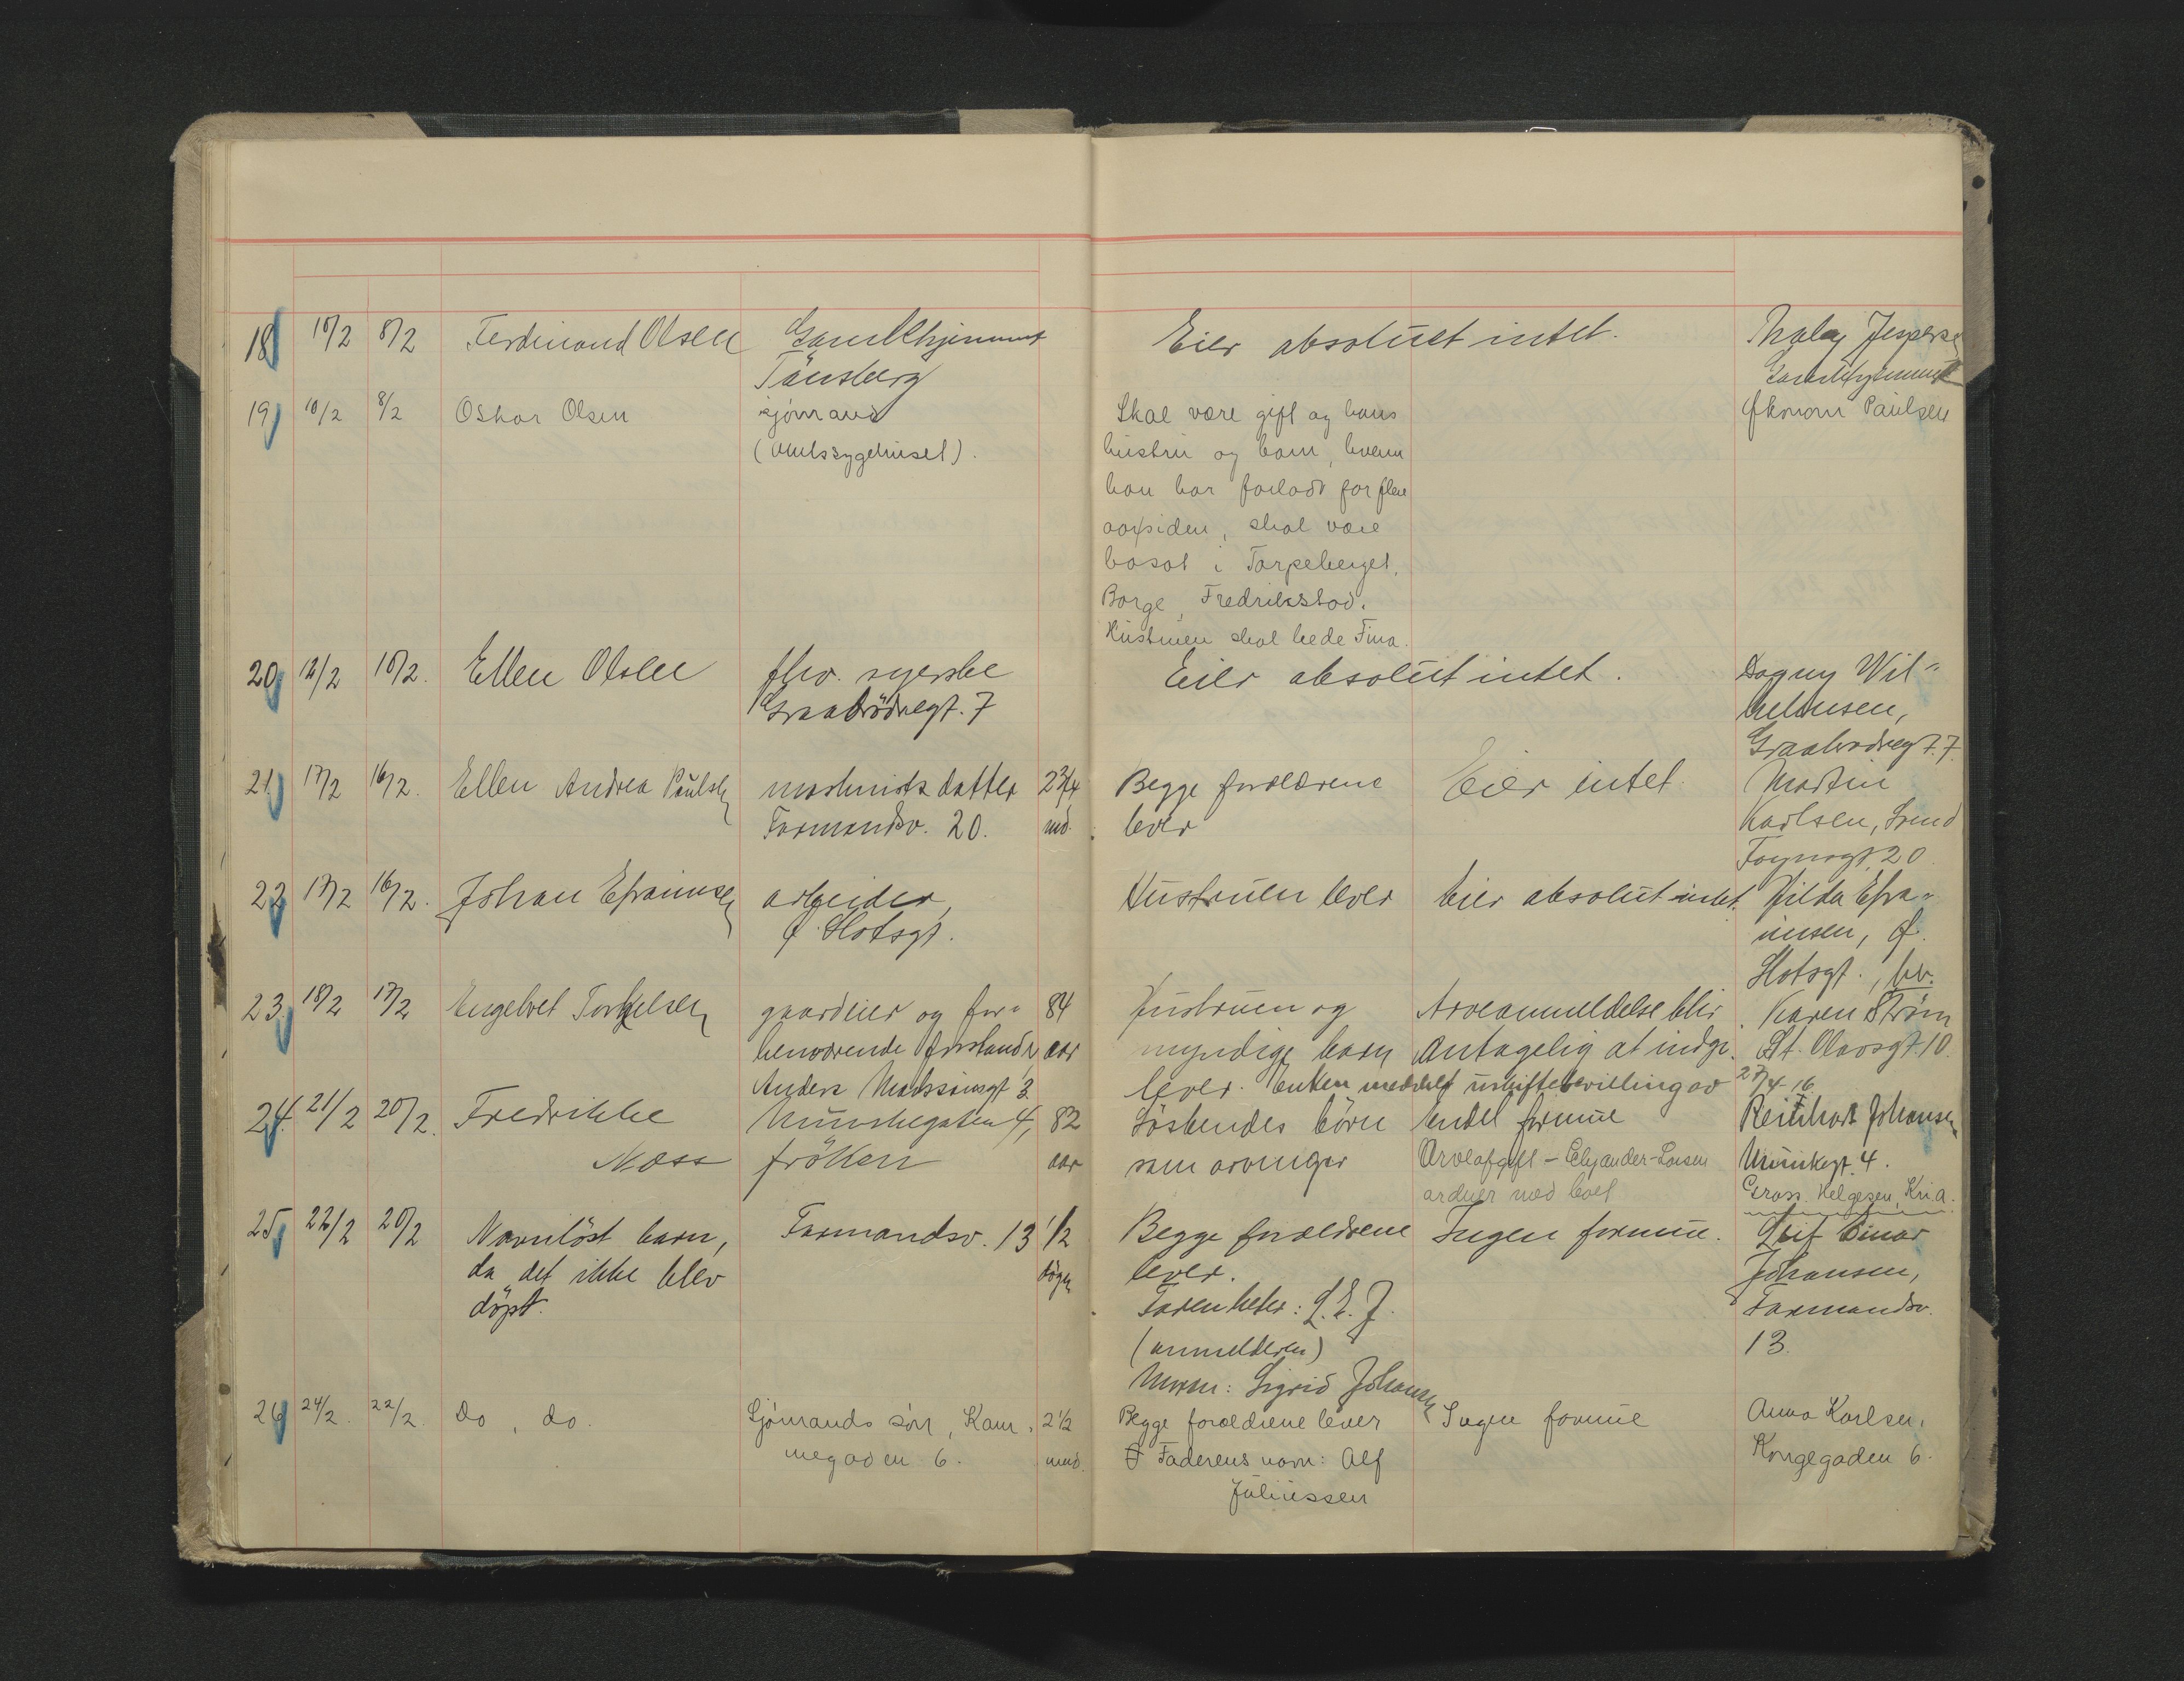 18 10/2 8/2 Ferdinand Olsen Gamlehjemmet Eier absolut intet. Jespersen
Tønsberg Gamlehjemmet
19 10/2 8/2 Oskar Olsen sjømand Skal være gift og hans Økonom Paulsen
(Amtssygehuset). hustru og barn, hvem
han har forladt for flere
aar siden, skal være
bosat i Torpeberget,
Borge, Fredrikstad.
Hustruen skal hede Fina.
20 12/2 10/2. Ellen Olsen fhv. syerske Eier absolut intet. Dagny Wil-
Graabrødregt. 7 helmsen,
Graabrødregt. 7.
21 17/2 16/2. Ellen Andrea Paulsen maskinists datter 2 3/4 Begge forældrene Eier intet. Martin
Farmandsv. 20. md. lever Karlsen, Svend
Foynsgt. 20.
22 17/2 16/2. Johan Efraimsen arbeider, Hustruen lever Eier absolut intet. Hilda Efra-
Ø. Slotsgt. imsen, Ø.
Slotsgt.,
23. 18/2 17/2 Engelbret Torkelsen gaardeier og for- 84 Hustruen og Arveanmeldelse blir Karen Strøm
henværende aar myndige barn antagelig at indgi. St. Olavsgt. 10.
Anders Madssønsgt 3. lever. Enken meddelt uskiftebevilling av 27/4-16
24. 21/2 20/2. Fredrikke Munkegaten 4, 82 Søskendes børn Endel formue Reinhart Johansen
Næss frøken aar som arvinger Arveafgift - Elyander-Larsen Munkegt. 4.
ordner med boet Helgesen, Kr.a.
25 22/2 20/2 Navnløst barn, Farmandsv. 13 1/2 Begge forældrene Ingen formue. Leif Einar
da det ikke blev døgn lever. Johansen,
døpt. Faren heter: L. E. J. Farmandsv.
(anmelderen) 13.
Moren: Sigrid Johansen
26 24/2. 22/2. Do, do. Sjømands søn, Kam- 2 1/2 Begge forældrene lever Ingen formue Anna Karlsen,
megaden 6. mnd. Faderens navn: Alf Kongegaden 6.
Juliussen